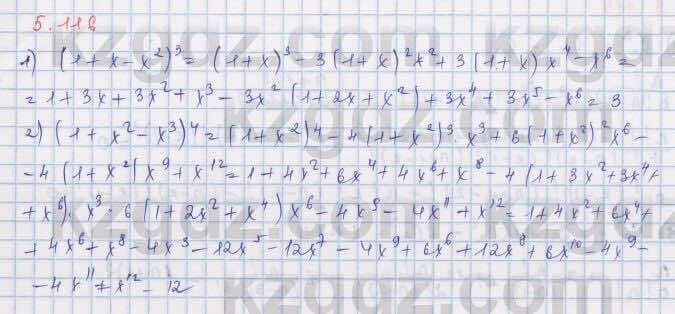 5.118
1) (1+x-x²)³ = (1+x)³ - 3(1+x)²x² + 3(1+x)x⁴ - x⁶ =
= 1+3x+3x²+x³ - 3x²(1+2x+x²) + 3x⁴ + 3x⁵ - x⁶ = 3
2) (1+x²-x³)⁴ = (1+x²)⁴ - 4(1+x²)³·x³ + 6(1+x²)²x⁶ -
-4(1+x²)x⁹ + x¹² = 1+4x²+6x⁴+4x⁶+x⁸ - 4(1+3x²+3x⁴+
+x⁶)·x³·6(1+2x²+x⁴)x⁶ - 4x⁹ - 4x¹¹ + x¹² = 1+4x²+6x⁴+
+4x⁶+x⁸-4x³-12x⁵-12x⁷-4x⁹+6x⁶+12x⁸+6x¹⁰-4x⁹-
-4x¹¹+x¹² - 12
kzgdz.com